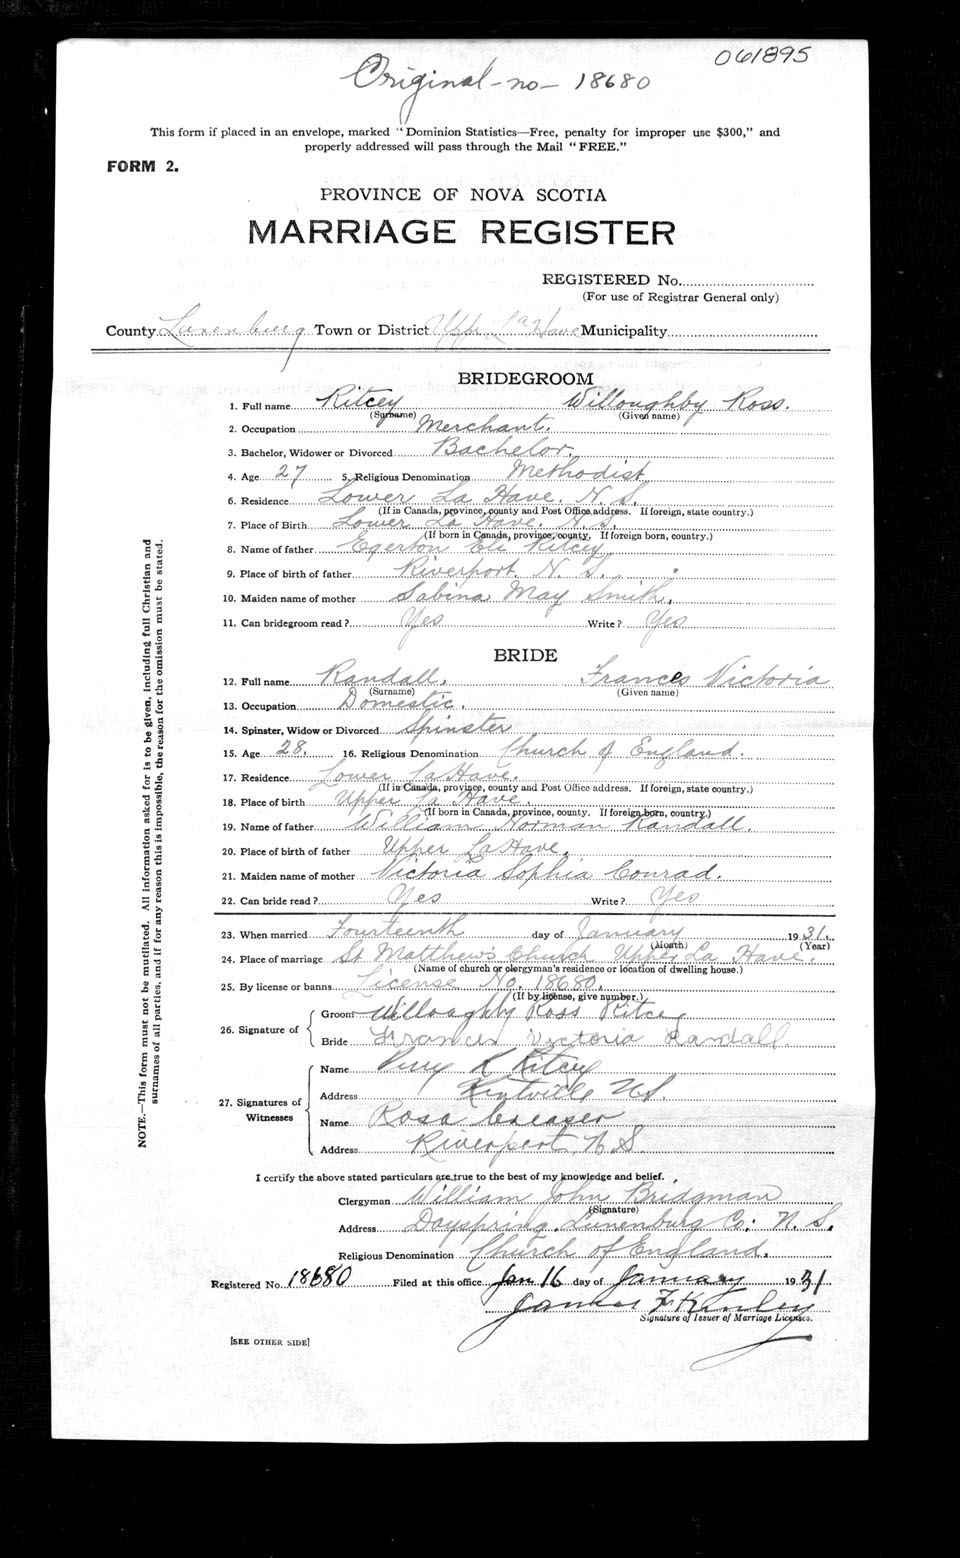 061895
Original - no - 18680
This form if placed in an envelope, marked "Dominion Statistics—Free, penalty for improper use $300," and
properly addressed will pass through the Mail "FREE."
FORM 2.
PROVINCE OF NOVA SCOTIA
MARRIAGE REGISTER
REGISTERED No.
(For use of Registrar General only)
County Lunenburg Town or District Upper La Have Municipality
BRIDEGROOM
1. Full name Ritcey Willoughby Ross.
(Surname) (Given name)
2. Occupation Merchant.
3. Bachelor, Widower or Divorced Bachelor.
4. Age 27 5. Religious Denomination Methodist
6. Residence Lower La Have. N. S.
(If in Canada, province, county and Post Office address. If foreign, state country.)
7. Place of Birth Lower La Have. N. S.
(If born in Canada, province, county. If foreign born, country.)
8. Name of father Egerton Eli Ritcey
9. Place of birth of father Riverport. N. S.
10. Maiden name of mother Sabina May Smith.
11. Can bridegroom read? Yes Write? Yes
BRIDE
12. Full name Randall. Frances Victoria
(Surname) (Given name)
13. Occupation Domestic.
14. Spinster, Widow or Divorced Spinster
15. Age 28. 16. Religious Denomination Church of England.
17. Residence Lower La Have.
(If in Canada, province, county and Post Office address. If foreign, state country.)
18. Place of birth Upper La Have.
(If born in Canada, province, county. If foreign born, country.)
19. Name of father William Norman Randall.
20. Place of birth of father Upper La Have.
21. Maiden name of mother Victoria Sophia Conrad.
22. Can bride read? Yes Write? Yes
23. When married Fourteenth day of January 1931.
(Month) (Year)
24. Place of marriage St Matthew's Church Upper La Have.
(Name of church or clergyman's residence or location of dwelling house.)
25. By license or banns License No. 18680.
(If by license, give number.)
26. Signature of
Groom Willoughby Ross Ritcey
Bride Frances Victoria Randall.
27. Signatures of Witnesses
Name Perry R. Ritcey
Address Kentville N.S.
Name Rosa Creaser
Address Riverport N.S.
I certify the above stated particulars are true to the best of my knowledge and belief.
Clergyman William John Bridgman
(Signature)
Address Dayspring. Lunenburg Co: N. S.
Religious Denomination Church of England.
Registered No. 18680 Filed at this office Jan 16 day of January 1931
James F Kinley
Signature of Issuer of Marriage Licenses.
[SEE OTHER SIDE]
NOTE.—This form must not be mutilated. All information asked for is to be given, including full Christian and
surnames of all parties, and if for any reason this is impossible, the reason for the omission must be stated.